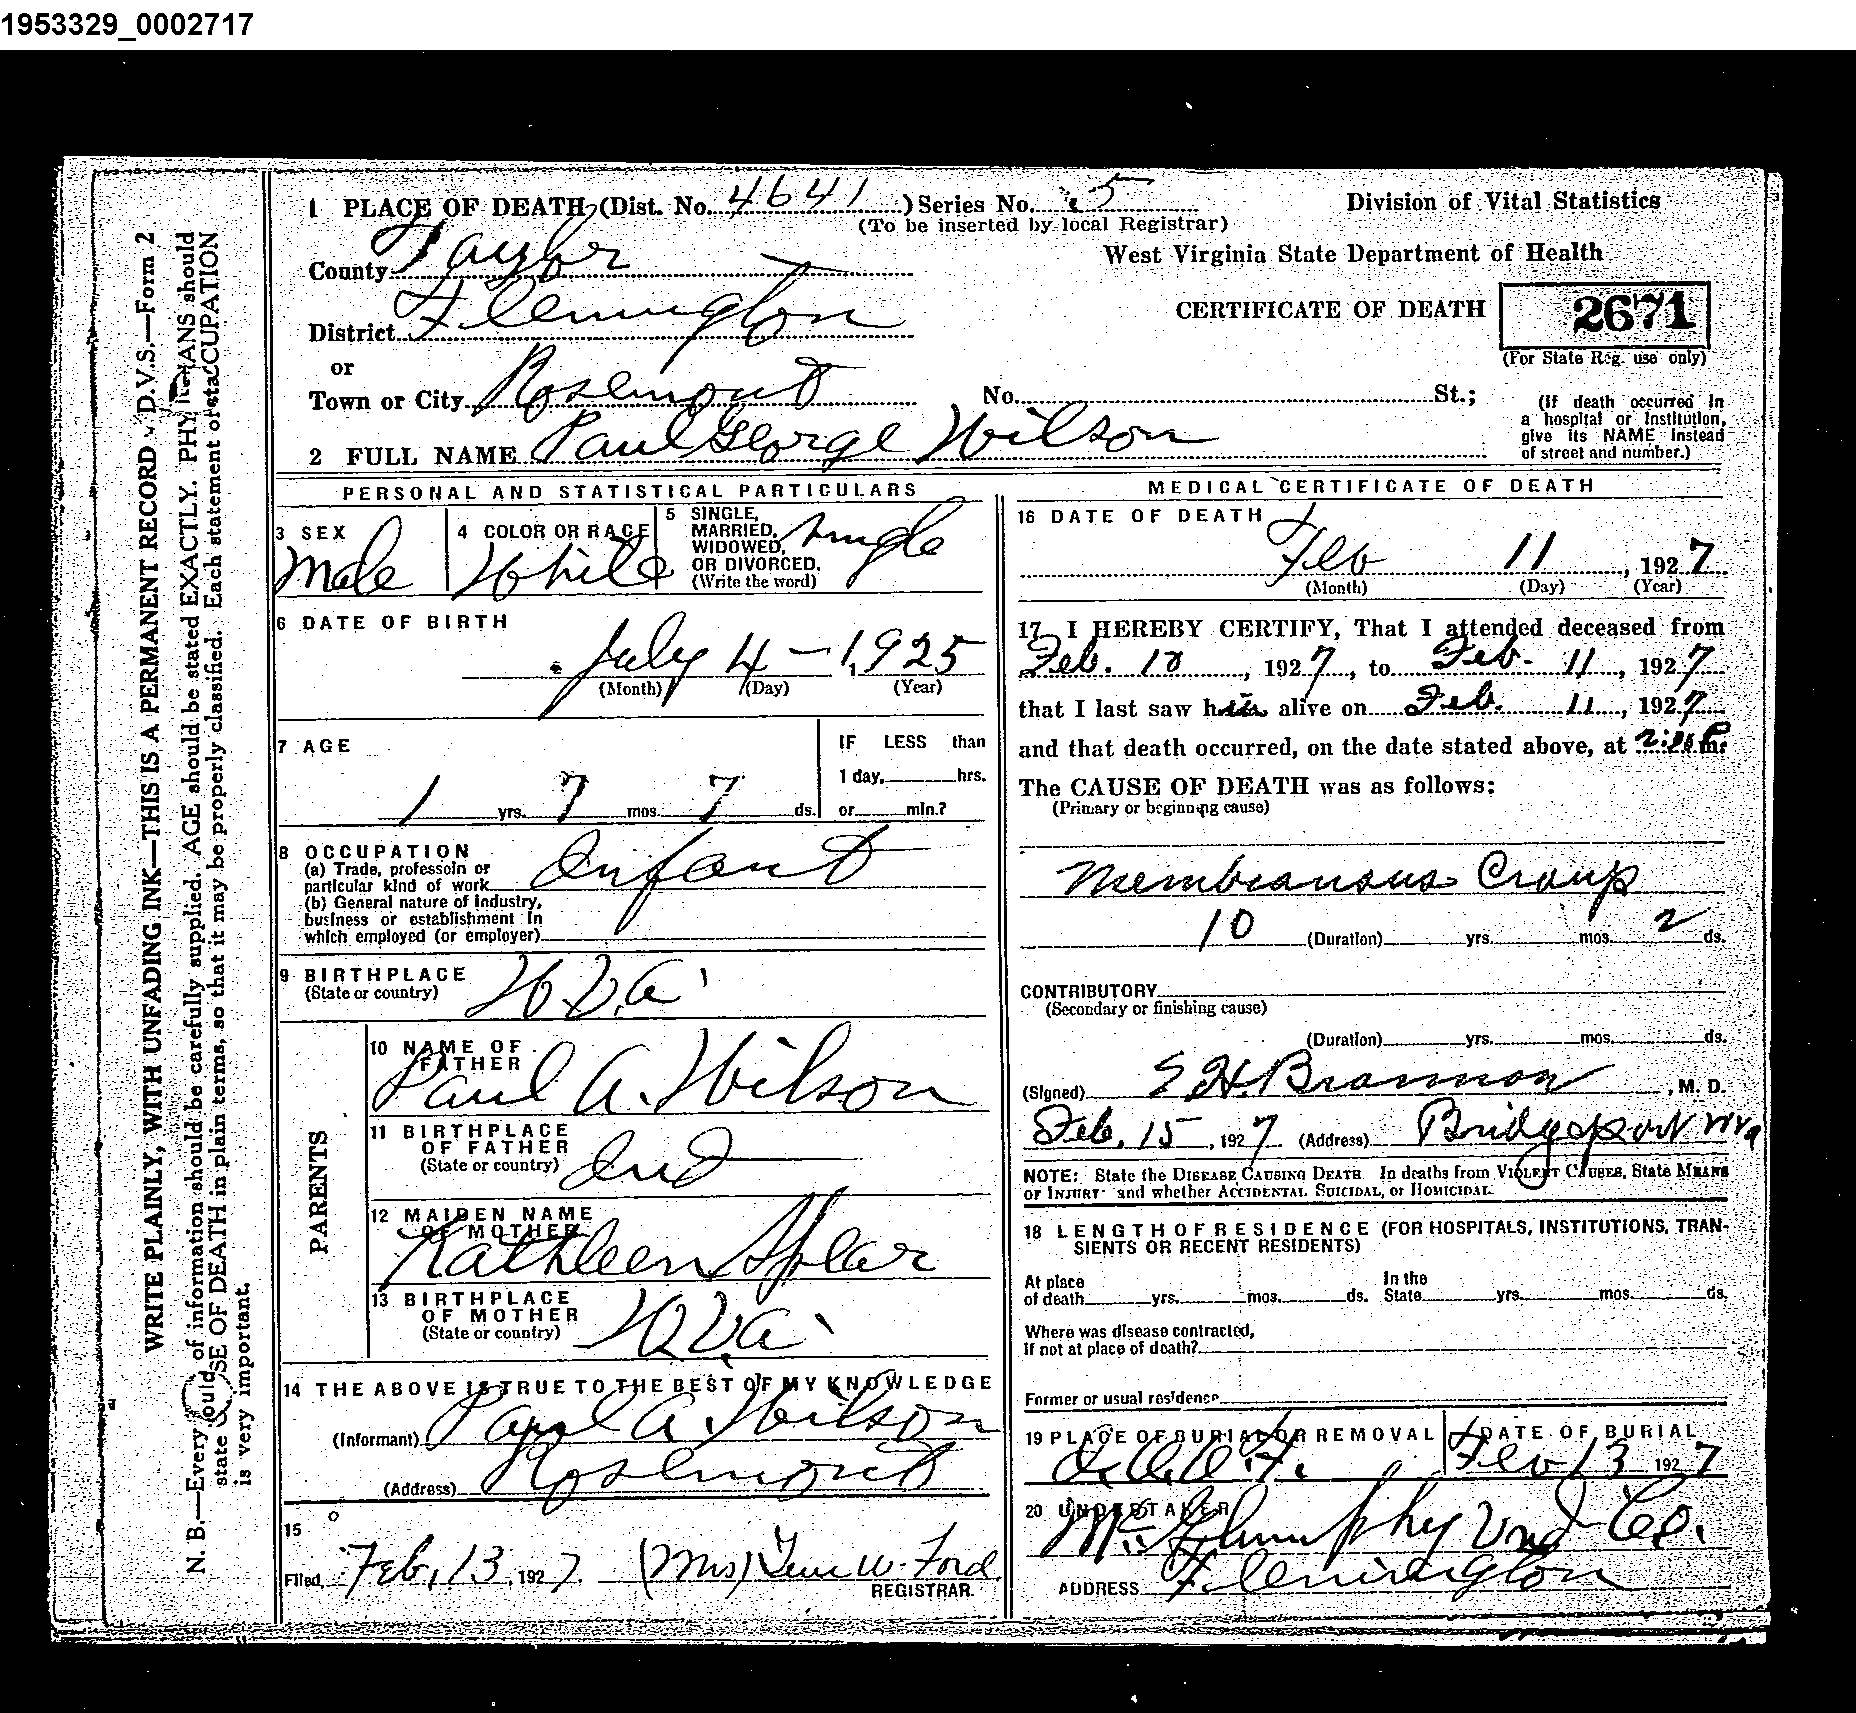 1953329_0002717
1 PLACE OF DEATH (Dist. No. 4641 ) Series No. 5
(To be inserted by local Registrar)
Division of Vital Statistics
County Taylor
West Virginia State Department of Health
District Flemington
CERTIFICATE OF DEATH 2671
(For State Reg. use only)
or
Town or City Rosemont No. St.;
(If death occurred in
a hospital or institution,
give its NAME instead
of street and number.)
2 FULL NAME Paul George Wilson
WRITE PLAINLY, WITH UNFADING INK—THIS IS A PERMANENT RECORD D.V.S.—Form 2
N. B.—Every of information should be carefully supplied. AGE should be stated EXACTLY. should
state OF DEATH in plain terms, so that it may be properly classified. Each statement of
is very important.
PERSONAL AND STATISTICAL PARTICULARS
3 SEX
Male
4 COLOR OR RACE
White
5 SINGLE,
MARRIED,
WIDOWED,
OR DIVORCED.
(Write the word)
Single
6 DATE OF BIRTH
July 4 - 1925
(Month) (Day) (Year)
7 AGE
1 yrs. 7 mos. 7 ds.
IF LESS than
1 day, hrs.
or min.?
8 OCCUPATION
(a) Trade, professoin or
particular kind of work Infant
(b) General nature of industry,
business or establishment in
which employed (or employer)
9 BIRTHPLACE
(State or country) W Va.
PARENTS
10 NAME OF
FATHER
Paul A. Wilson
11 BIRTHPLACE
OF FATHER
(State or country) Ind
12 MAIDEN NAME
OF MOTHER
Kathleen Splar
13 BIRTHPLACE
OF MOTHER
(State or country) W Va
14 THE ABOVE IS TRUE TO THE BEST OF MY KNOWLEDGE
(Informant) Paul A. Wilson
(Address) Rosemont
15
Filed Feb. 13, 1927. (Mrs) W. Ford
REGISTRAR.
MEDICAL CERTIFICATE OF DEATH
16 DATE OF DEATH
Feb 11, 1927
(Month) (Day) (Year)
17 I HEREBY CERTIFY, That I attended deceased from
Feb. 10, 1927, to Feb. 11, 1927
that I last saw him alive on Feb. 11, 1927
and that death occurred, on the date stated above, at P m.
The CAUSE OF DEATH was as follows:
(Primary or beginning cause)
Membranous Croup
10 (Duration) yrs. mos. 2 ds.
CONTRIBUTORY
(Secondary or finishing cause)
(Duration) yrs. mos. ds.
(Signed) E H. Brannon, M. D.
Feb. 15, 1927 (Address) Bridgeport W Va
NOTE: State the DISEASE CAUSING DEATH. In deaths from VIOLENT CAUSES, State MEANS
OR INJURY and whether ACCIDENTAL SUICIDAL, or HOMICIDAL.
18 LENGTH OF RESIDENCE (FOR HOSPITALS, INSTITUTIONS, TRAN-
SIENTS OR RECENT RESIDENTS)
At place
of death yrs. mos. ds.
In the
State yrs. mos. ds.
Where was disease contracted,
If not at place of death?
Former or usual residence
19 PLACE OF BURIAL OR REMOVAL
I.O.O.F.
DATE OF BURIAL
Feb 13 1927
20 UNDERTAKER
Und Co.
ADDRESS Flemington